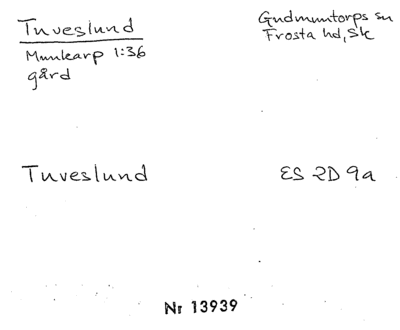 Tuveslund
Gudmuntorps sn
Munkarp 1:36
Frosta hd, Sk
gård
Tuveslund
ES 2D 9a
Nr 13939